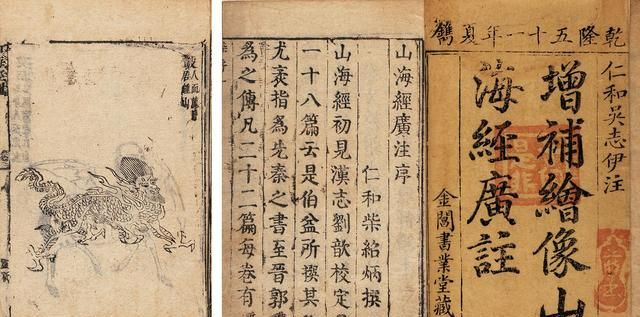 乾隆五十一年夏鐫
仁和吳志伊注
增補繪像山
海經廣註
金閶書業堂藏
山海經廣注序
仁和柴紹炳撰
山海經初見漢志劉歆校定
一十八篇云是伯益所撰其
尤袤指為先秦之書至晉郭
為之傳凡二十二篇每卷有